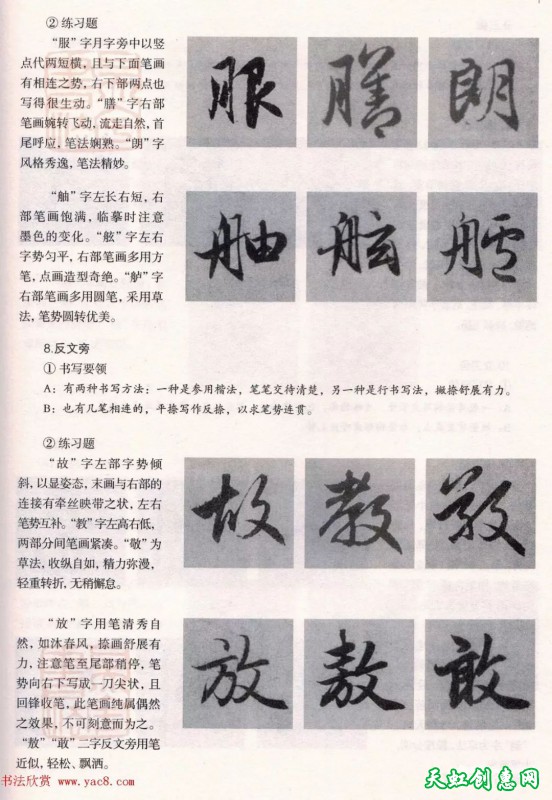 ② 练习题
“服”字月字旁中以竖
点代两短横，且与下面笔画
有相连之势，右下部两点也
写得很生动。“膳”字右部
笔画婉转飞动，流走自然，首
尾呼应，笔法娴熟。“朗”字
风格秀逸，笔法精妙。
服 膳 朗
“舳”字左长右短，右
部笔画饱满，临摹时注意
墨色的变化。“舷”字左右
字势匀平，右部笔画多用方
笔，点画造型奇绝。“舻”字
右部笔画多用圆笔，采用草
法，笔势圆转优美。
舳 舷 舻
8.反文旁
① 书写要领
A：有两种书写方法：一种是参用楷法，笔笔交待清楚，另一种是行书写法，撇捺舒展有力。
B：也有几笔相连的，平捺写作反捺，以求笔势连贯。
② 练习题
“故”字左部字势倾
斜，以显姿态，末画与右部的
连接有牵丝映带之状，左右
笔势互补。“教”字左高右低，
两部分间笔画紧凑。“敬”为
草法，收纵自如，精力弥漫，
轻重转折，无稍懈怠。
故 教 敬
“放”字用笔清秀自
然，如沐春风，捺画舒展有
力，注意笔至尾部稍停，笔
势向右下写成一刀尖状，且
回锋收笔，此笔画纯属偶然
之效果，不可刻意而为之。
“敖”“敢”二字反文旁用笔
近似，轻松、飘洒。
放 敖 敢
书法欣赏 www.yac8.com
天虹创意网